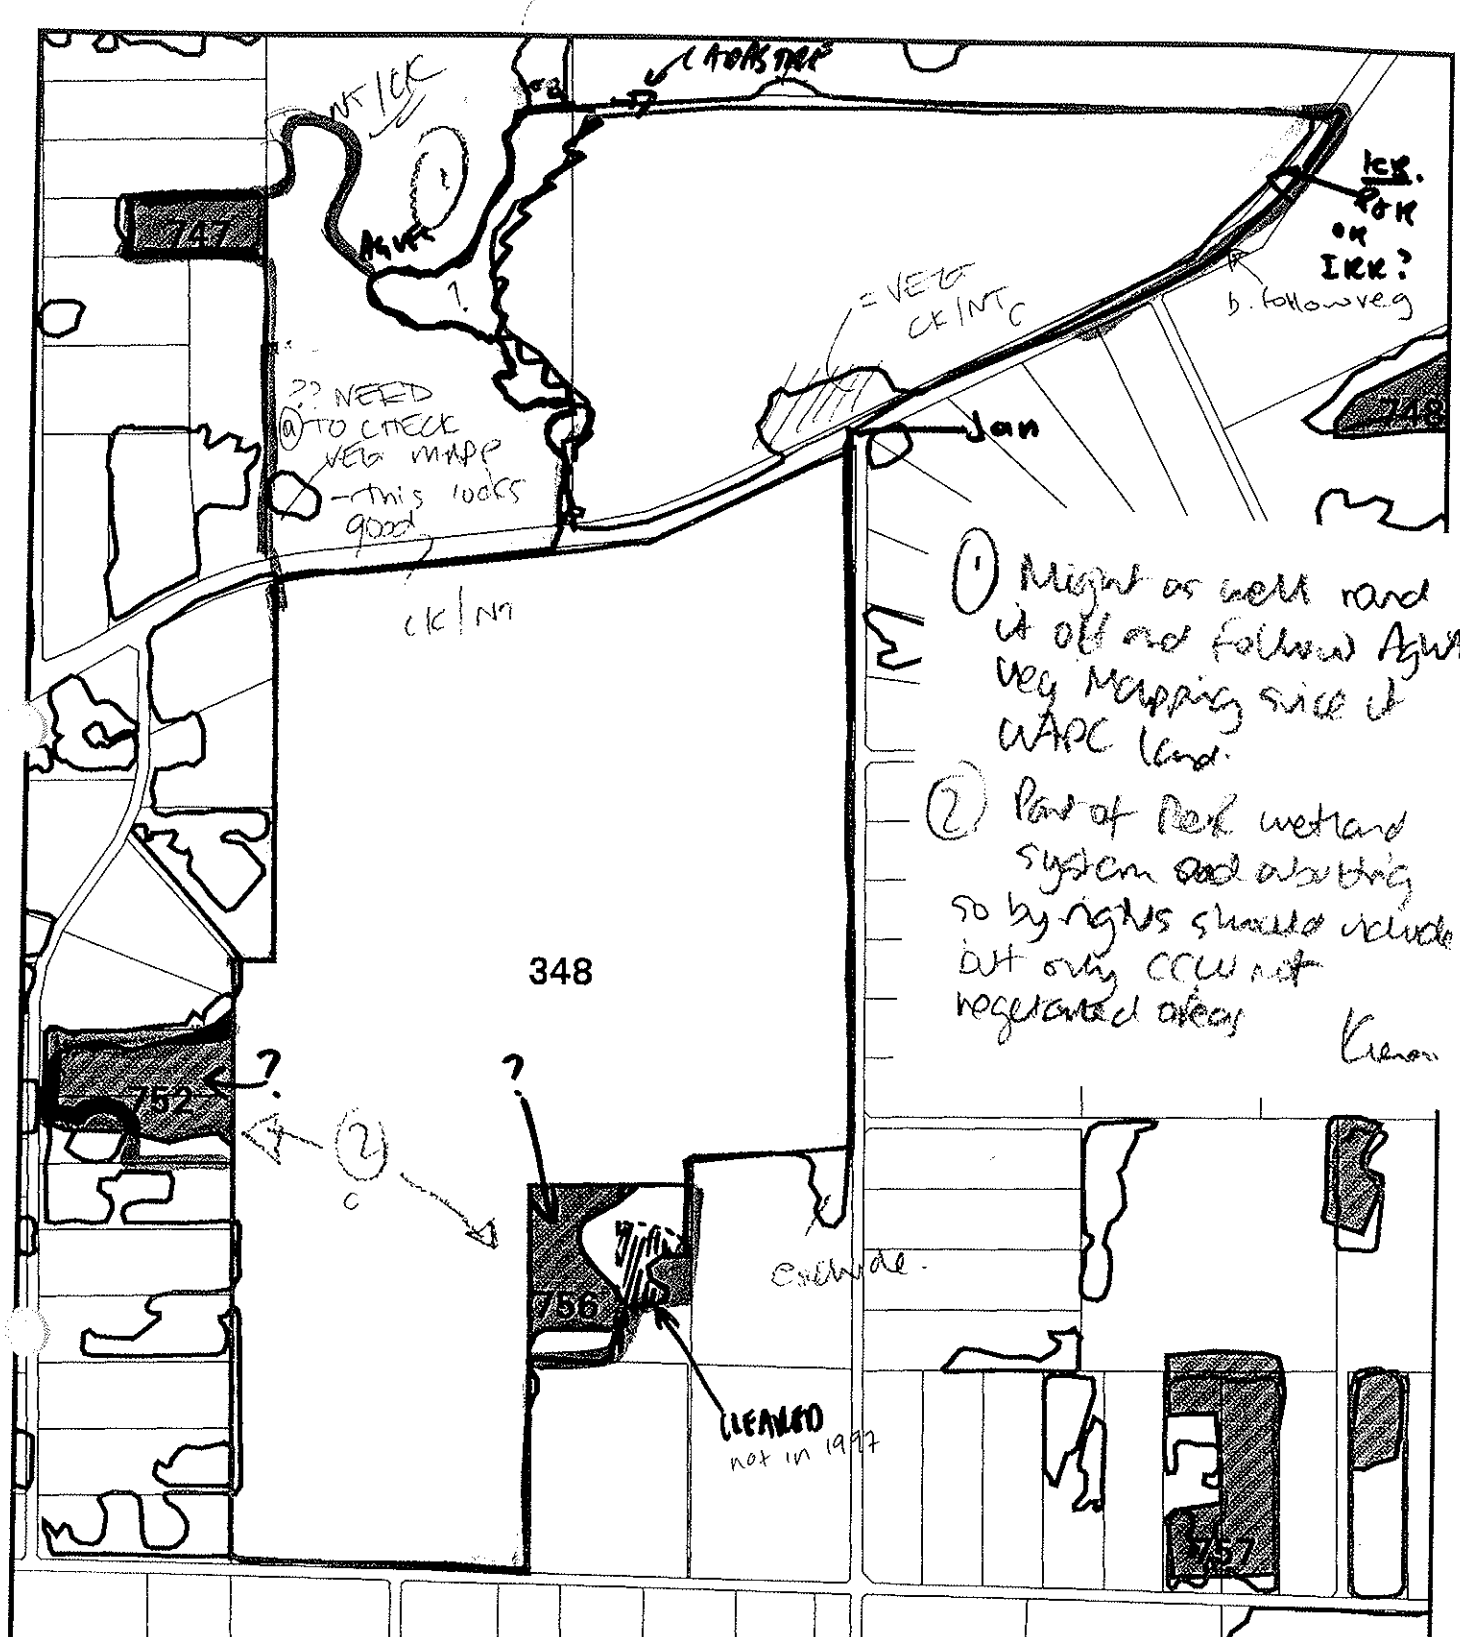 CADASTRE
NT/CK
1
747
AgVeg
?
= VEG
CK/NT
C
PAR
OR
IRR?
b. follow veg
748
?? NEED
(a) TO CHECK
VEG MAPP
- this looks
good
Jan
CK/NT
1 Might as well round
it off and follow AgWA
veg Mapping since it
WAPC land.
2 Part of P&R wetland
system and abutting
so by rights should include
but only CCW not
vegetated areas
Kieran
348
?
?
752
2
C
756
exclude.
CLEARED
not in 1997
757